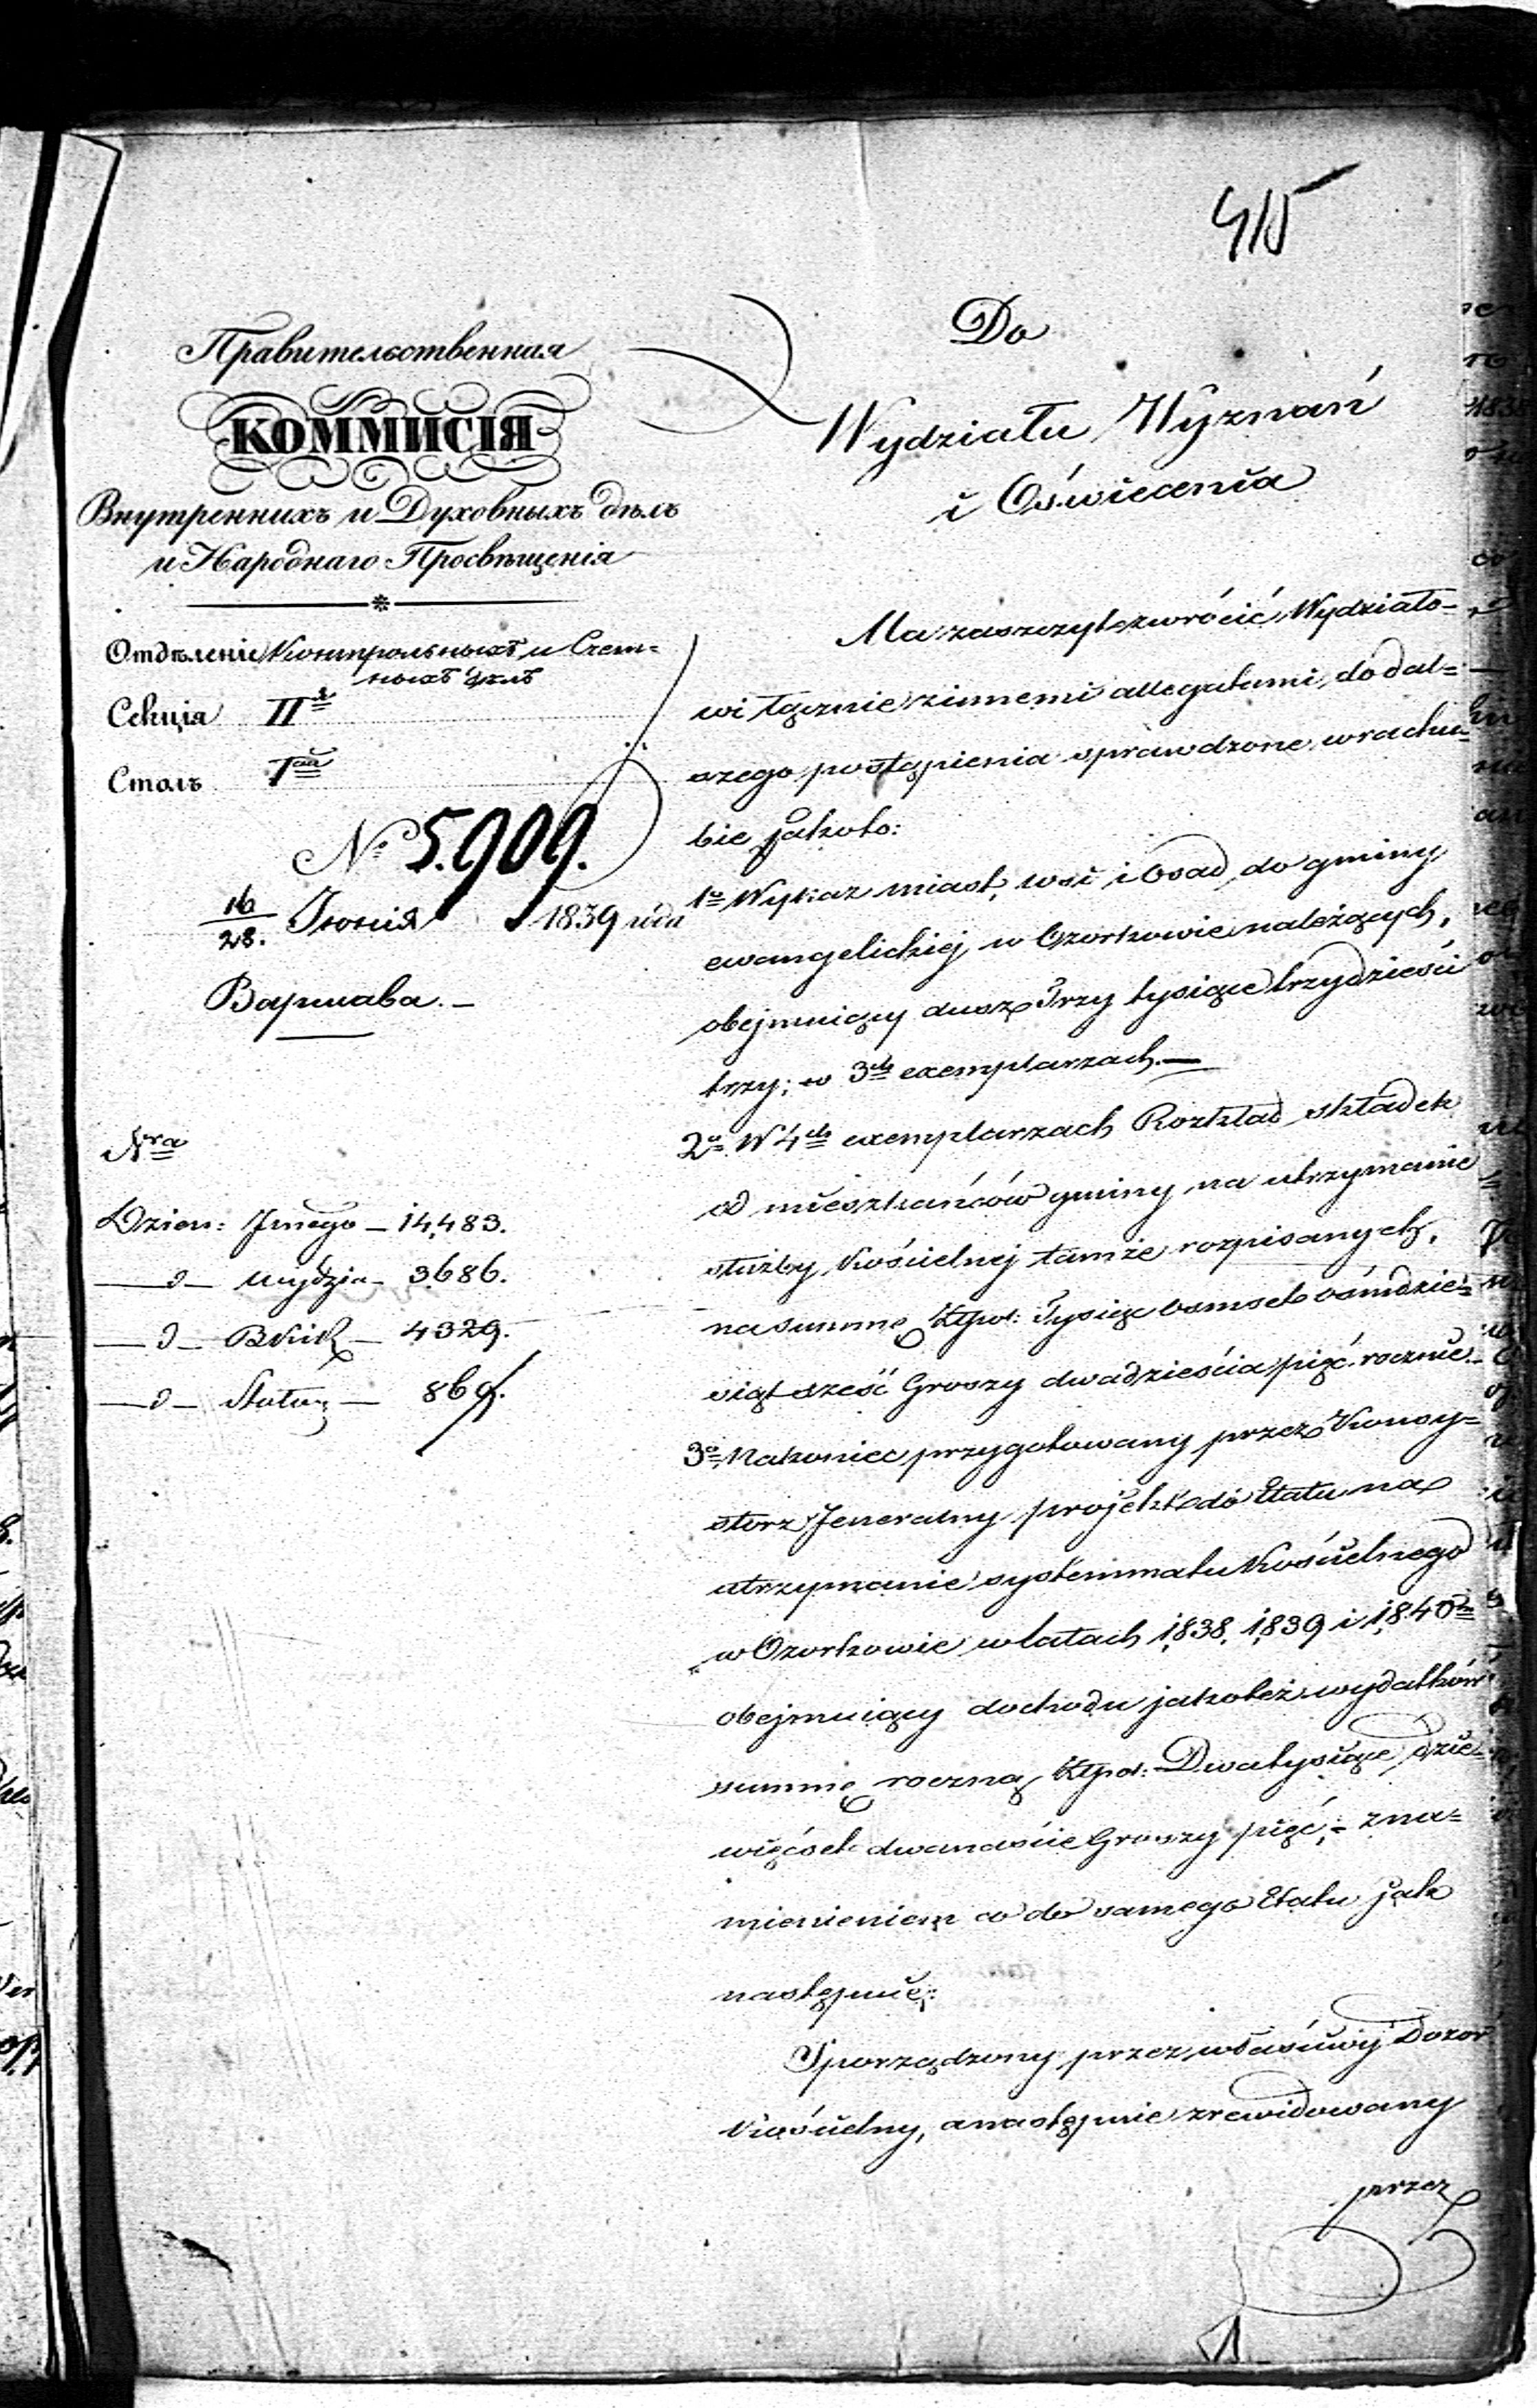 415
Правительственная
КОММИСІЯ
Внутреннихъ и Духовныхъ дѣлъ
и Народнаго Просвѣщенія
Отдѣленіе Контрольныхъ и Счет=
ныхъ дѣлъ
Секція IIя
Столъ Iый
№ 5.909.
16/28. Іюнія 1839 года
Варшава.—
Nra
Dzien: Jnego — 14,483.
—d— Wydzia — 3686.
—d— — 4329.
—d— — 869.
Do
Wydziału Wyznań
i Oświecenia
Ma zaszczyt zwrócić Wydziało=
wi łącznie z innemi allegatami, do dal=
szego postąpienia sprawdzone w rachu=
bie jakoto:
1o Wykaz miast, wsi i Osad, do gminy
ewangelickiej w Ozorkowie należących,
obejmuiący dusz Trzy tysiące trzydzieści
trzy; w 3ch exemplarzach.—
2o W 4ch exemplarzach Rozkład składek
od mieszkańców gminy na utrzymanie
służby Kościelnej tamże rozpisanych,
na summę Złpol: Tysiąc osmset ośmdzie=
siąt sześć Groszy dwadzieścia pięć rocznie.—
3o Nakoniec przygotowany przez Konsy=
storz Jeneralny projekt do Etatu na
utrzymanie systemmatu Kościelnego
w Ozorkowie w latach 1838, 1839 i 1840m
obejmuiący dochodu jakoteż wydatków
summę roczną Złpol: Dwa tysiące dzie=
więćset dwanaście Groszy pięć; — z na=
mienieniem co do samego Etatu jak
następuie:
Sporządzony przez właściwy Dozor
Kościelny, a następnie zrewidowany
przez
1